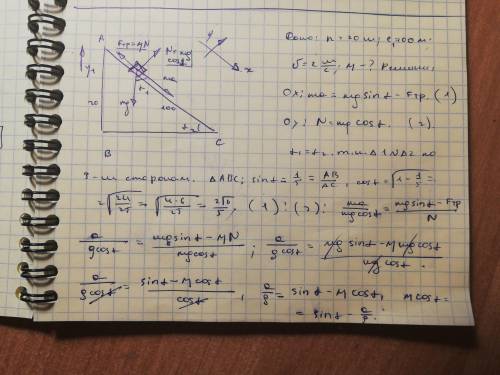 A
Fтр = MN
N = mg
cost
y
x
ma
mg
t₁
20
100
t₂
B
C
Дано: h = 20 м; l = 100 м;
v = 2 м/с; M - ? Решение:
Ox: ma = mg sint - Fтр. (1)
Oy: N = mg cost. (2).
t₁ = t₂, т.к. Δ1 ∾ Δ2 по
3-м сторонам. ΔABC: sint = 1/5 = AB/AC, cost = √(1 - 1/5 =
= √(24/25) = √(4·6/25) = 2√6/5, (1) : (2): ma/mg cost = (mg sint - Fтр)/N
a/g cost = (mg sint - MN)/mg cost; a/g cost = (mg sint - M mg cost)/mg cost.
a/g cost = (sint - M cost)/cost, a/g = sint - M cost, M cost =
= sint - a/g;